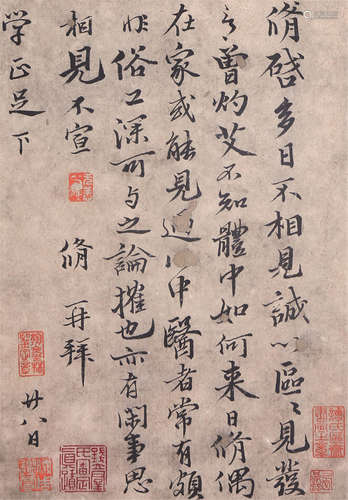 脩啓多日不相見誠以區〻見發
言曾灼艾不知體中如何来日脩偶
在家或能見過此中醫者常有頗
非俗工深可与之論搉也亦有閑事思
相見不宣
脩再拜
学正足下
廿八日